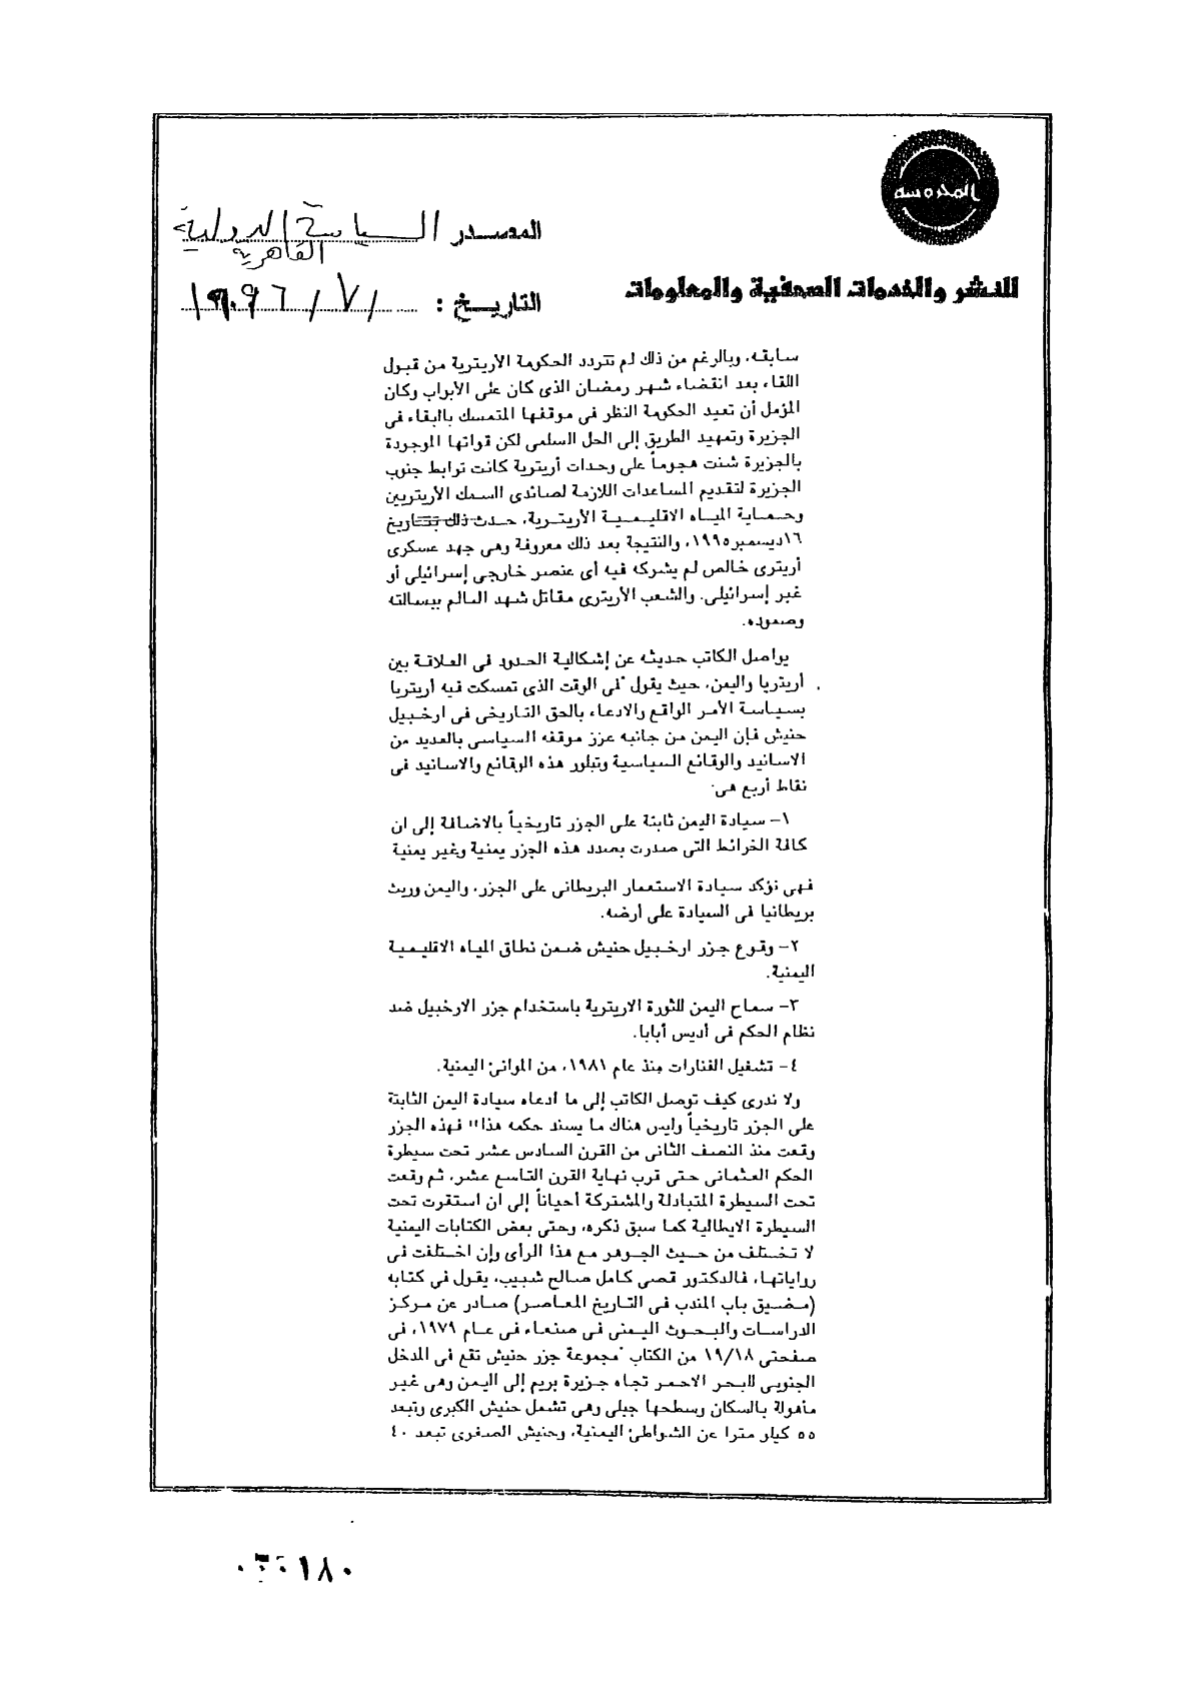 المحروسة
للنشر والخدمات الصحفية والمعلومات
المصدر السياسة الدولية
القاهرية
التاريخ : / ٧ / ١٩٩٦
سابقه، وبالرغم من ذلك لم تتردد الحكومة الأريترية من قبول
اللقاء بعد انقضاء شهر رمضان الذى كان على الأبواب وكان
المؤمل أن تعيد الحكومة النظر فى موقفها المتمسك باابقاء فى
الجزيرة وتمهيد الطريق إلى الحل السلمى لكن قواتها الموجودة
بالجزيرة شنت هجوماً على وحدات أريترية كانت ترابط جنوب
الجزيرة لتقديم المساعدات اللازمة لصائدى السمك الأريتريين
وحماية المياه الاقليمية الأريترية، حدث ذلك بتاريخ
١٦ديسمبر ١٩٩٥، والنتيجة بعد ذلك معروفة وهى جهد عسكرى
أريترى خالص لم يشركه فيه أى عنصر خارجى إسرائيلى أو
غير إسرائيلى. والشعب الأريترى مقاتل شهد العالم ببسالته
وصموده.
يواصل الكاتب حديثه عن إشكالية الحدود فى العلاقة بين
أريتريا واليمن، حيث يقول "فى الوقت الذى تمسكت فيه أريتريا
بسياسة الأمر الواقع والادعاء بالحق التاريخى فى ارخبيل
حنيش فإن اليمن من جانبه عزز موقفه السياسى بالعديد من
الاسانيد والوقائع السياسية وتبلور هذه الوقائع والاسانيد فى
نقاط أربع هى·
١- سيادة اليمن ثابتة على الجزر تاريخياً بالاضافة إلى ان
كافة الخرائط التى صدرت بصدد هذه الجزر يمنية وغير يمنية
فهى تؤكد سيادة الاستعمار البريطانى على الجزر، واليمن وريث
بريطانيا فى السيادة على أرضه.
٢- وقوع جزر ارخبيل حنيش ضمن نطاق المياه الاقليمية
اليمنية.
٣- سماح اليمن للثورة الاريترية باستخدام جزر الارخبيل ضد
نظام الحكم فى أديس أبابا.
٤- تشغيل الفنارات منذ عام ١٩٨١، من الموانئ اليمنية.
ولا ندرى كيف توصل الكاتب إلى ما أدعاه سيادة اليمن الثابتة
على الجزر تاريخياً وليس هناك ما يسند حكمه هذا" فهذه الجزر
وقعت منذ النصف الثانى من القرن السادس عشر تحت سيطرة
الحكم العثمانى حتى قرب نهاية القرن التاسع عشر، ثم وقعت
تحت السيطرة المتبادلة والمشتركة أحياناً إلى ان استقرت تحت
السيطرة الايطالية كما سبق ذكره، وحتى بعض الكتابات اليمنية
لا تختلف من حيث الجوهر مع هذا الرأى وإن اختلفت فى
رواياتها، فالدكتور قصى كامل صالح شبيب، يقول فى كتابه
(مضيق باب المندب فى التاريخ المعاصر) صادر عن مركز
الدراسات والبحوث اليمنى فى صنعاء فى عام ١٩٧٩، فى
صفحتى ١٩/١٨ من الكتاب "مجموعة جزر حنيش تقع فى المدخل
الجنوبى للبحر الاحمر تجاه جزيرة بريم إلى اليمن وهى غير
مأهولة بالسكان وسطحها جبلى وهى تشمل حنيش الكبرى وتبعد
٥٥ كيلو مترا عن الشواطئ اليمنية، وحنيش الصغرى تبعد ٤٠